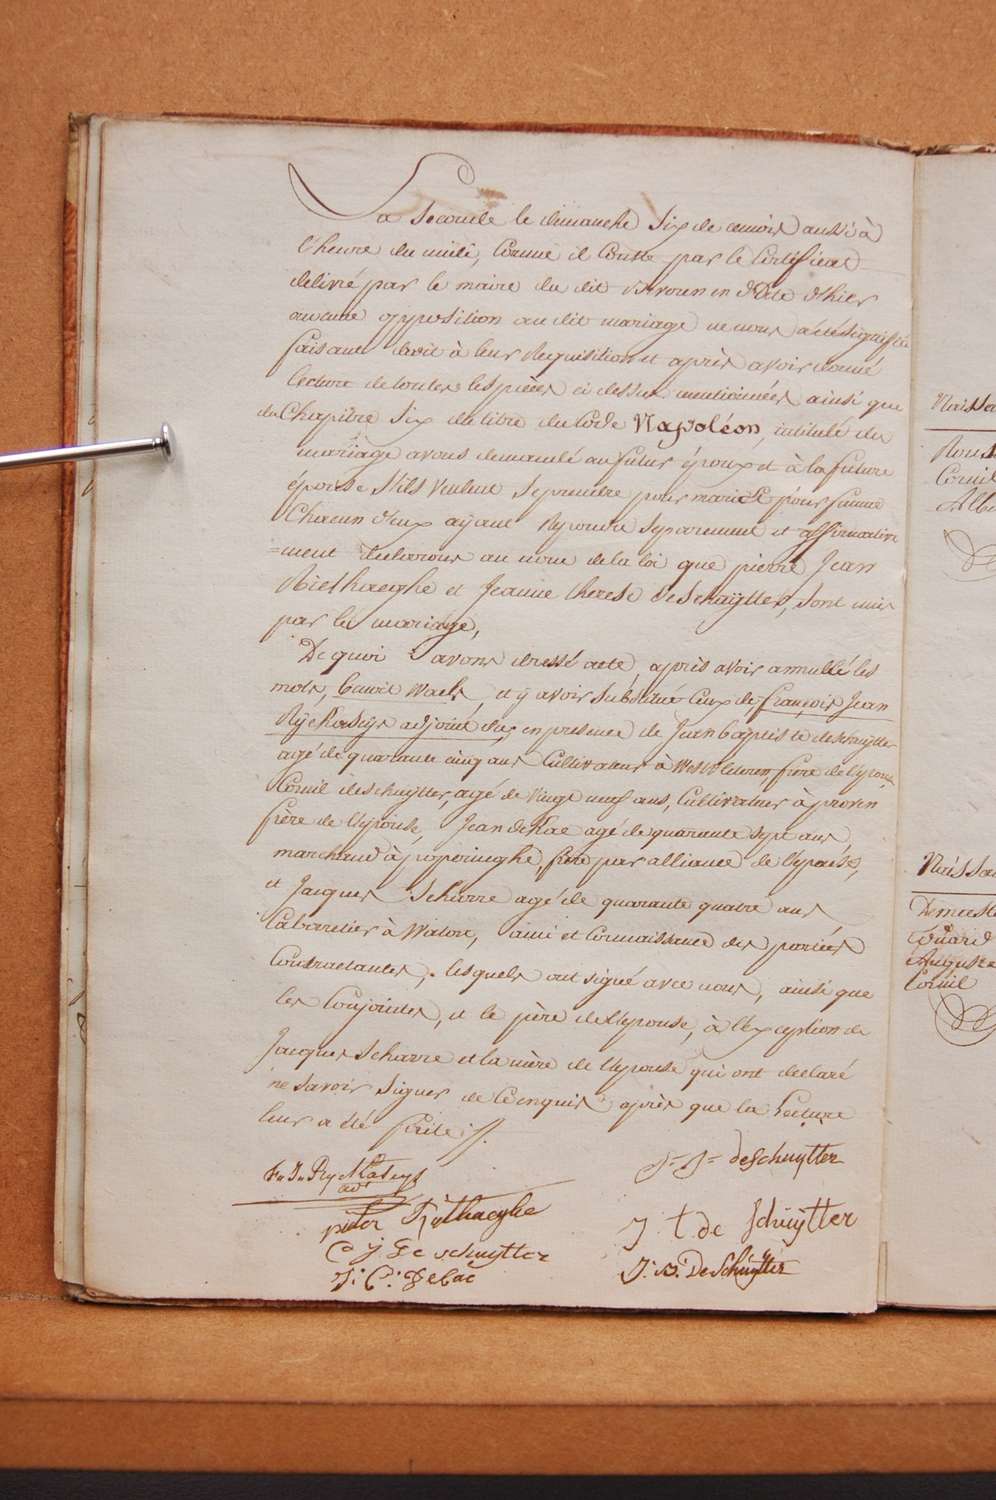 La seconde le dimanche Six de ce mois aussi à
l'heure du midi, comme il conste par le certificat
delivré par le maire du dit en date d'hier
aucune opposition au dit mariage ne nous a été signifiée
faisant droit à leur Requisition et après avoir donné
lecture de toutes les pièces ci dessus mentionnées ainsi que
du Chapitre Six du titre du Code Napoléon, intitulé du
mariage avons demandé au futur époux et à la future
épouse s'ils veulent se prendre pour mari et pour femme
Chacun d'eux ayant repondu separement et affirmative
=ment declarons au nom de la loi que pierre Jean
Riethaeghe et Jeanne therese de Schuÿtter, sont unis
par le mariage,
De quoi avons dressé acte, après avoir annullé les
mots, benoit Waels, et y avoir substitué Ceux de françois Jean
Rÿckaseys adjoint du, en presence de Jean baptiste deschuytter
agé de quarante cinq ans Cultivateur à Westvleteren, frère de l'epouse
Cornil deschuytter, agé de vingt neuf ans, Cultivateur à proven
frère de l'epouse, Jean de Cae agé de quarante sept ans
marchand à poperinghe, frère par alliance de l'epouse,
et Jacques Scharre agé de quarante quatre ans
Cabaretier à Watou, ami et connaissance des parties
Contractantes, lesquels ont signé avec nous, ainsi que
les Conjointes, et le père de l'epouse, à l'exception de
Jacques Scharre et la mère de l'epouse qui ont declaré
ne savoir signer de ce enquis après que la Lecture
leur a été faite
J= J= deschuytter
F. J. Ryckaseys
adt
pieter Riethaeghe
J t. de Schuÿtter
C J De schuytter
J. B. DeSchuÿtter
J. C. Decae
Naissa
Cornil
Naissa
Demeeste
Edward
Auguste
Cornil